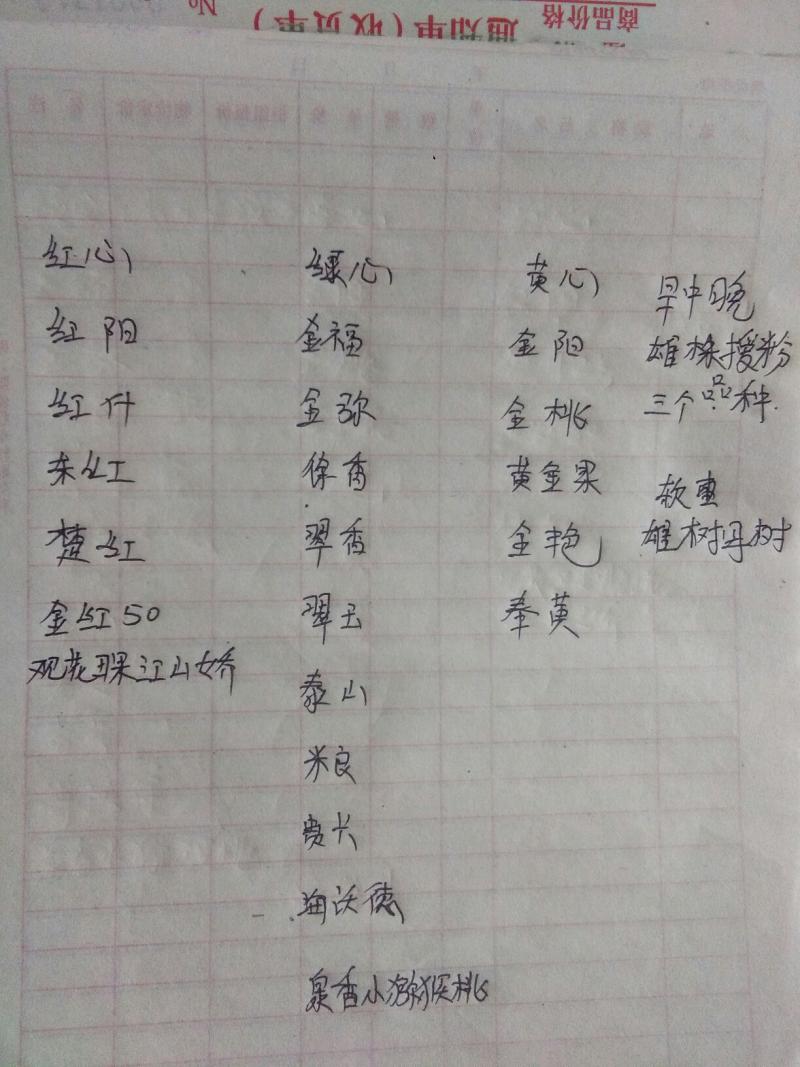 商品价格
通知单(收货单)
No
红心
红阳
红什
东红
楚红
金红50
观花果江山娇
绿心
金福
金弥
徐香
翠香
翠玉
泰山
米良
贵长
海沃德
泉香小猕猴桃
黄心
金阳
金桃
黄金果
金艳
奉黄
早中晚
雄株授粉
三个品种.
软枣
雄树母树